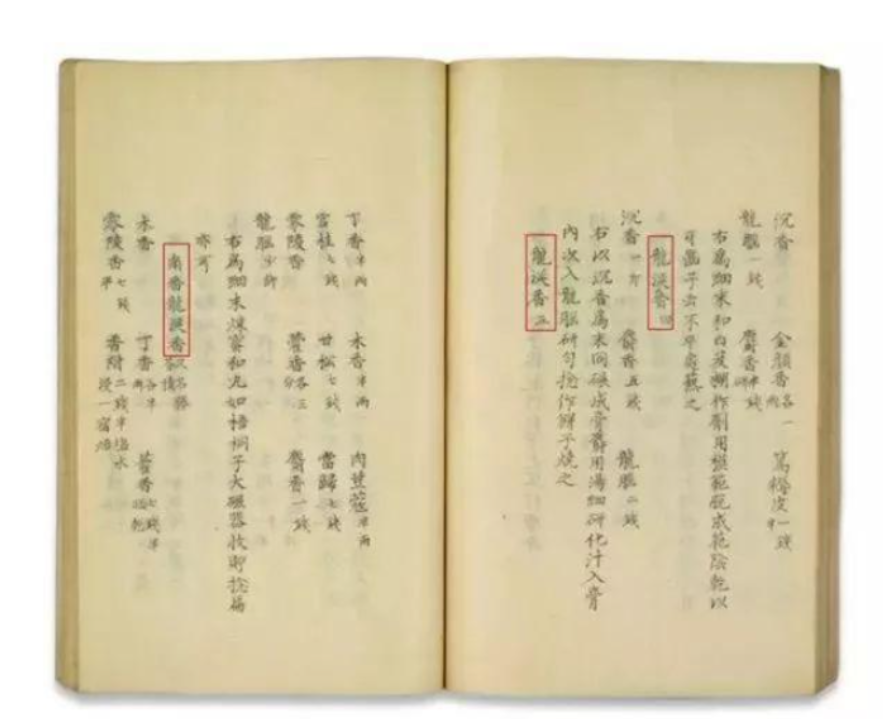 沉香 金顏香各一兩 篤耨皮一錢半
龍腦一錢 麝香半錢研
右爲細末和白芨糊作劑用模範脫成花陰乾以
牙齒子去不平處爇之
龍涎香四
沉香一斤 麝香五錢 龍腦二錢
右以沉香爲末同碾成膏麝用湯細研化汁入膏
內次入龍腦研勻捻作餅子燒之
龍涎香五
丁香半兩 木香半兩 肉荳蔻半兩
官桂七錢 甘松七錢 當歸七錢
零陵香 藿香各三分 麝香一錢
龍腦少許
右爲細末煉蜜和丸如梧桐子大磁器收貯捻扁
亦可
南番龍涎香又名勝芬積
木香 丁香各半兩 藿香七錢半晒乾
零陵香七錢半 香附二錢半塩水浸一宿焙